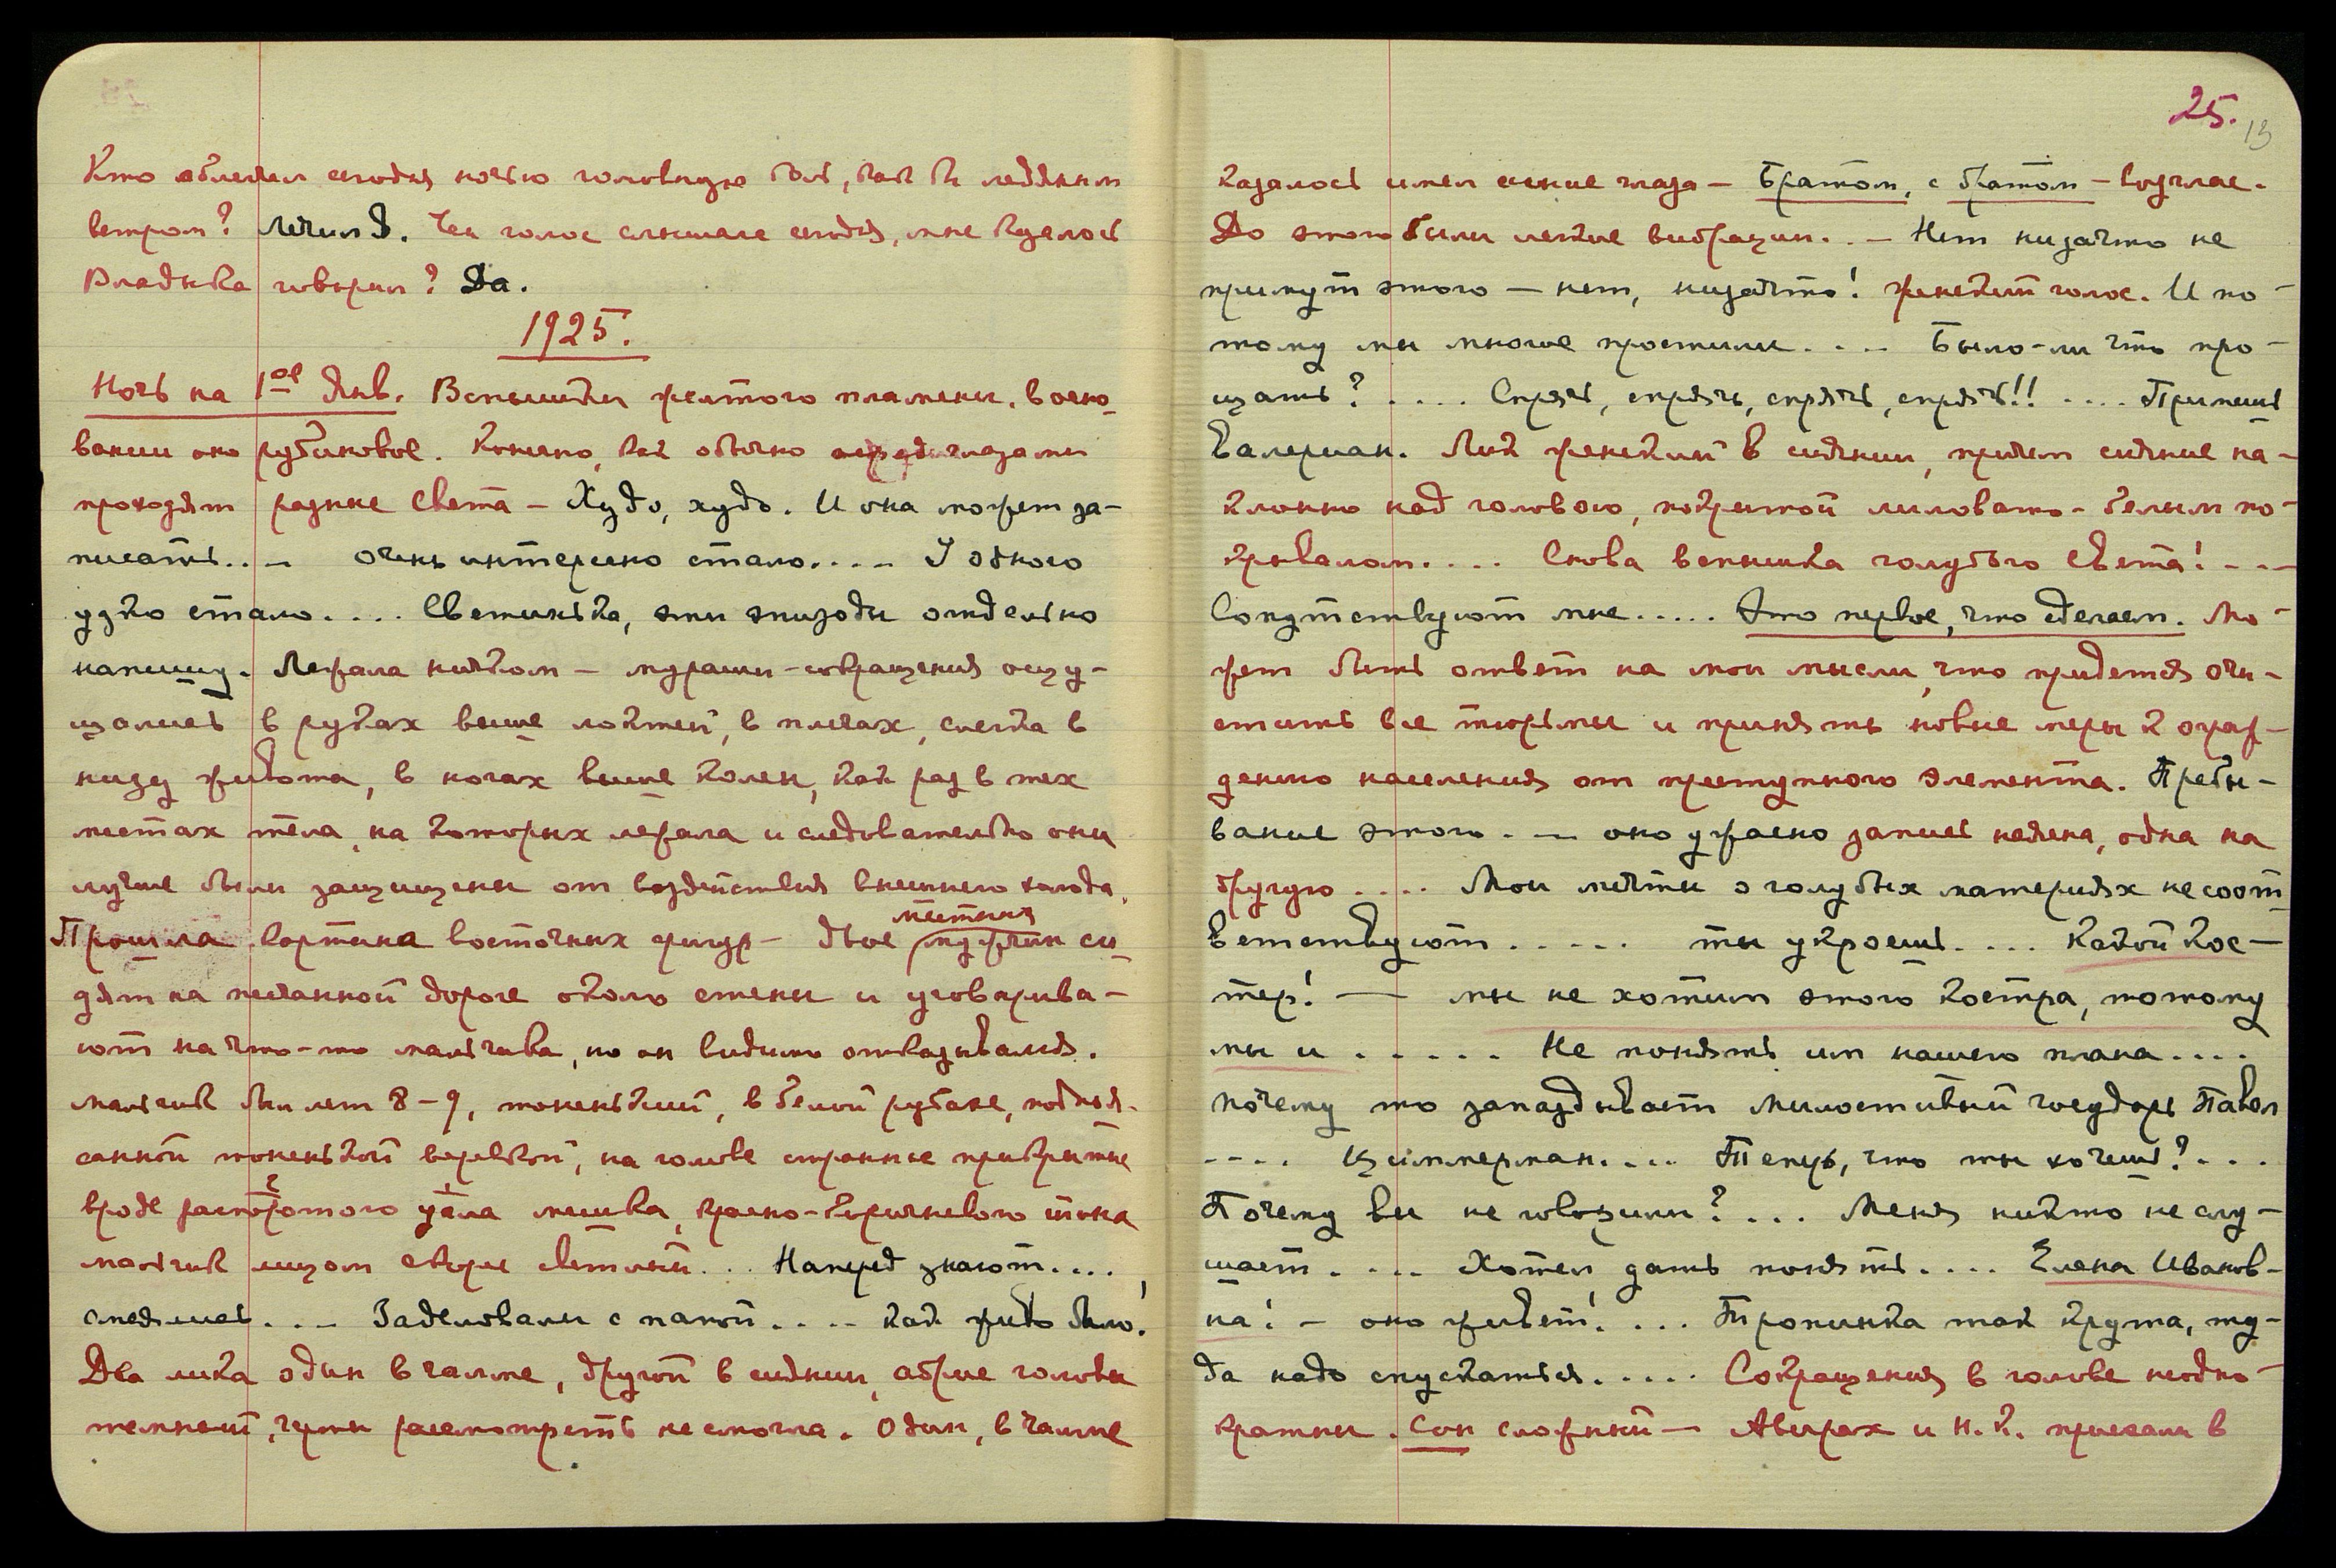 Кто облегчил сегодня ночью головную боль, как бы ледяным
ветром? Лечим Я. Чей голос слышала сегодня, мне казалось
Владыка говорил? Да.
1925.
Ночь на 1ое Янв. Вспышки желтого пламени, в осно-
вании оно рубиновое. Конечно, как обычно перед глазами
проходят разные света – Худо, худо. И она может за-
писать.... Очень интересно стало..... У одного
узко стало.... Светинька, эти эпизоды отдельно
напишу. Лежала ничком – мураши-сокращения ощу-
щались в руках выше локтей, в плечах, слегка в
низу живота, в ногах выше колен, как раз в тех
местах тела, на которых лежала и следовательно они
лучше были защищены от воздействия внешнего холода.
Прошла картина восточных фигур – двое местных мужчин си-
дят на песчанной дороге около стены и уговарива-
ют на что-то мальчика, но он видимо отказывался.
Мальчик был лет 8–9, тоненький, в белой рубахе, подпоя-
санной тоненькой веревкой, на голове странное прикрытие
вроде распоротого угла мешка, красно-коричневого тона
мальчик лицом скорее светлый... Наперед знают....
следишь.... Заделовали с папой.... Как живо было!
Два лика один в чалме, другой в сиянии, абрис головы
темный, черты рассмотреть не смогла. Один, в чалме
25.
13
казалось имел синие глаза – Братом, с братом – возглас.
До этого были легкие вибрации... – Нет низачто не
примут этого – нет, низачто! женский голос. И по-
тому мы многое простили.... Было-ли что про-
щать?.... Спрячь, спрячь, спрячь, спрячь!!.... Примешь
Валериан. Лик женский в сиянии, причем сияние на-
клонно над головою, покрытой лиловато-белым по-
крывалом.... Снова вспышка голубого света!....
Сопутствуют мне..... Это первое, что сделаем. Мо-
жет быть ответ на мои мысли, что придется очи-
стить все тюрьмы и принять новые меры к ограж-
дению населения от преступного элемента. Пребы-
вание этого.... оно ужасно запись неясна, одна на
другую.... Мои мечты о голубых материях не соот-
ветствуют..... ты укроешь.... Какой кос-
тер! — мы не хотим этого костра, потому
мы и..... Не понять им нашего плана....
Почему то запаздывает милостивый государь Павел
.... Циммерман.... Теперь, что ты хочешь?...
Почему вы не говорили?... Меня никто не слу-
шает.... Хотел дать понять.... Елена Иванов-
на! – оно живет!... Тропинка так крута, ту-
да надо спускаться..... Сокращения в голове неодно-
кратны. Сон сложный — Авирах и Н.К. приехали в